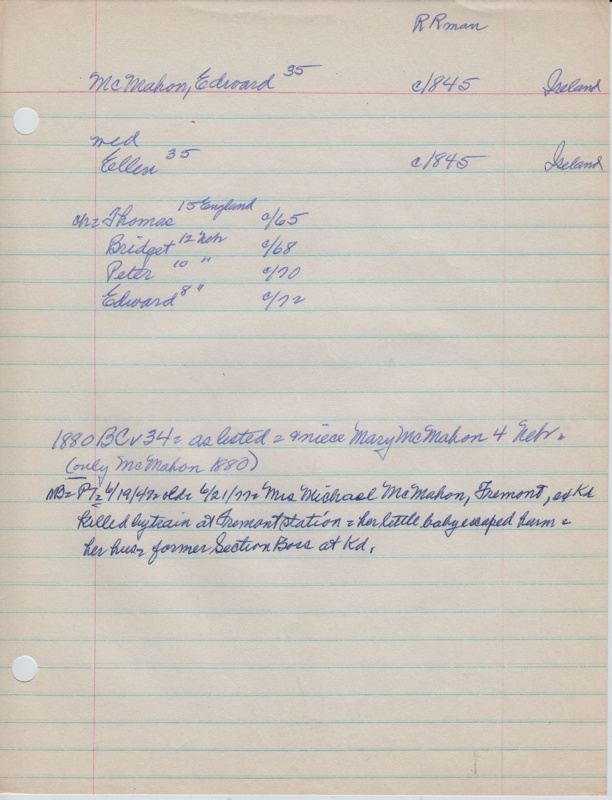 RRman
McMahon, Edward 35 c/1845 Ireland
wed
Ellen 35 c/1845 Ireland
ch= Thomas 15 England c/65
Bridget 12 Nebr c/68
Peter 10 " c/70
Edward 8 " c/72
1880 BCv34= as listed = & niece Mary McMahon 4 Nebr =
(only McMahon 1880)
NB= PT= 6/19/47= old= 6/21/77= Mrs Michael McMahon, Fremont, ex Kd
killed by train at Fremont station = her little baby escaped harm =
her hus= former Section Boss at Kd.